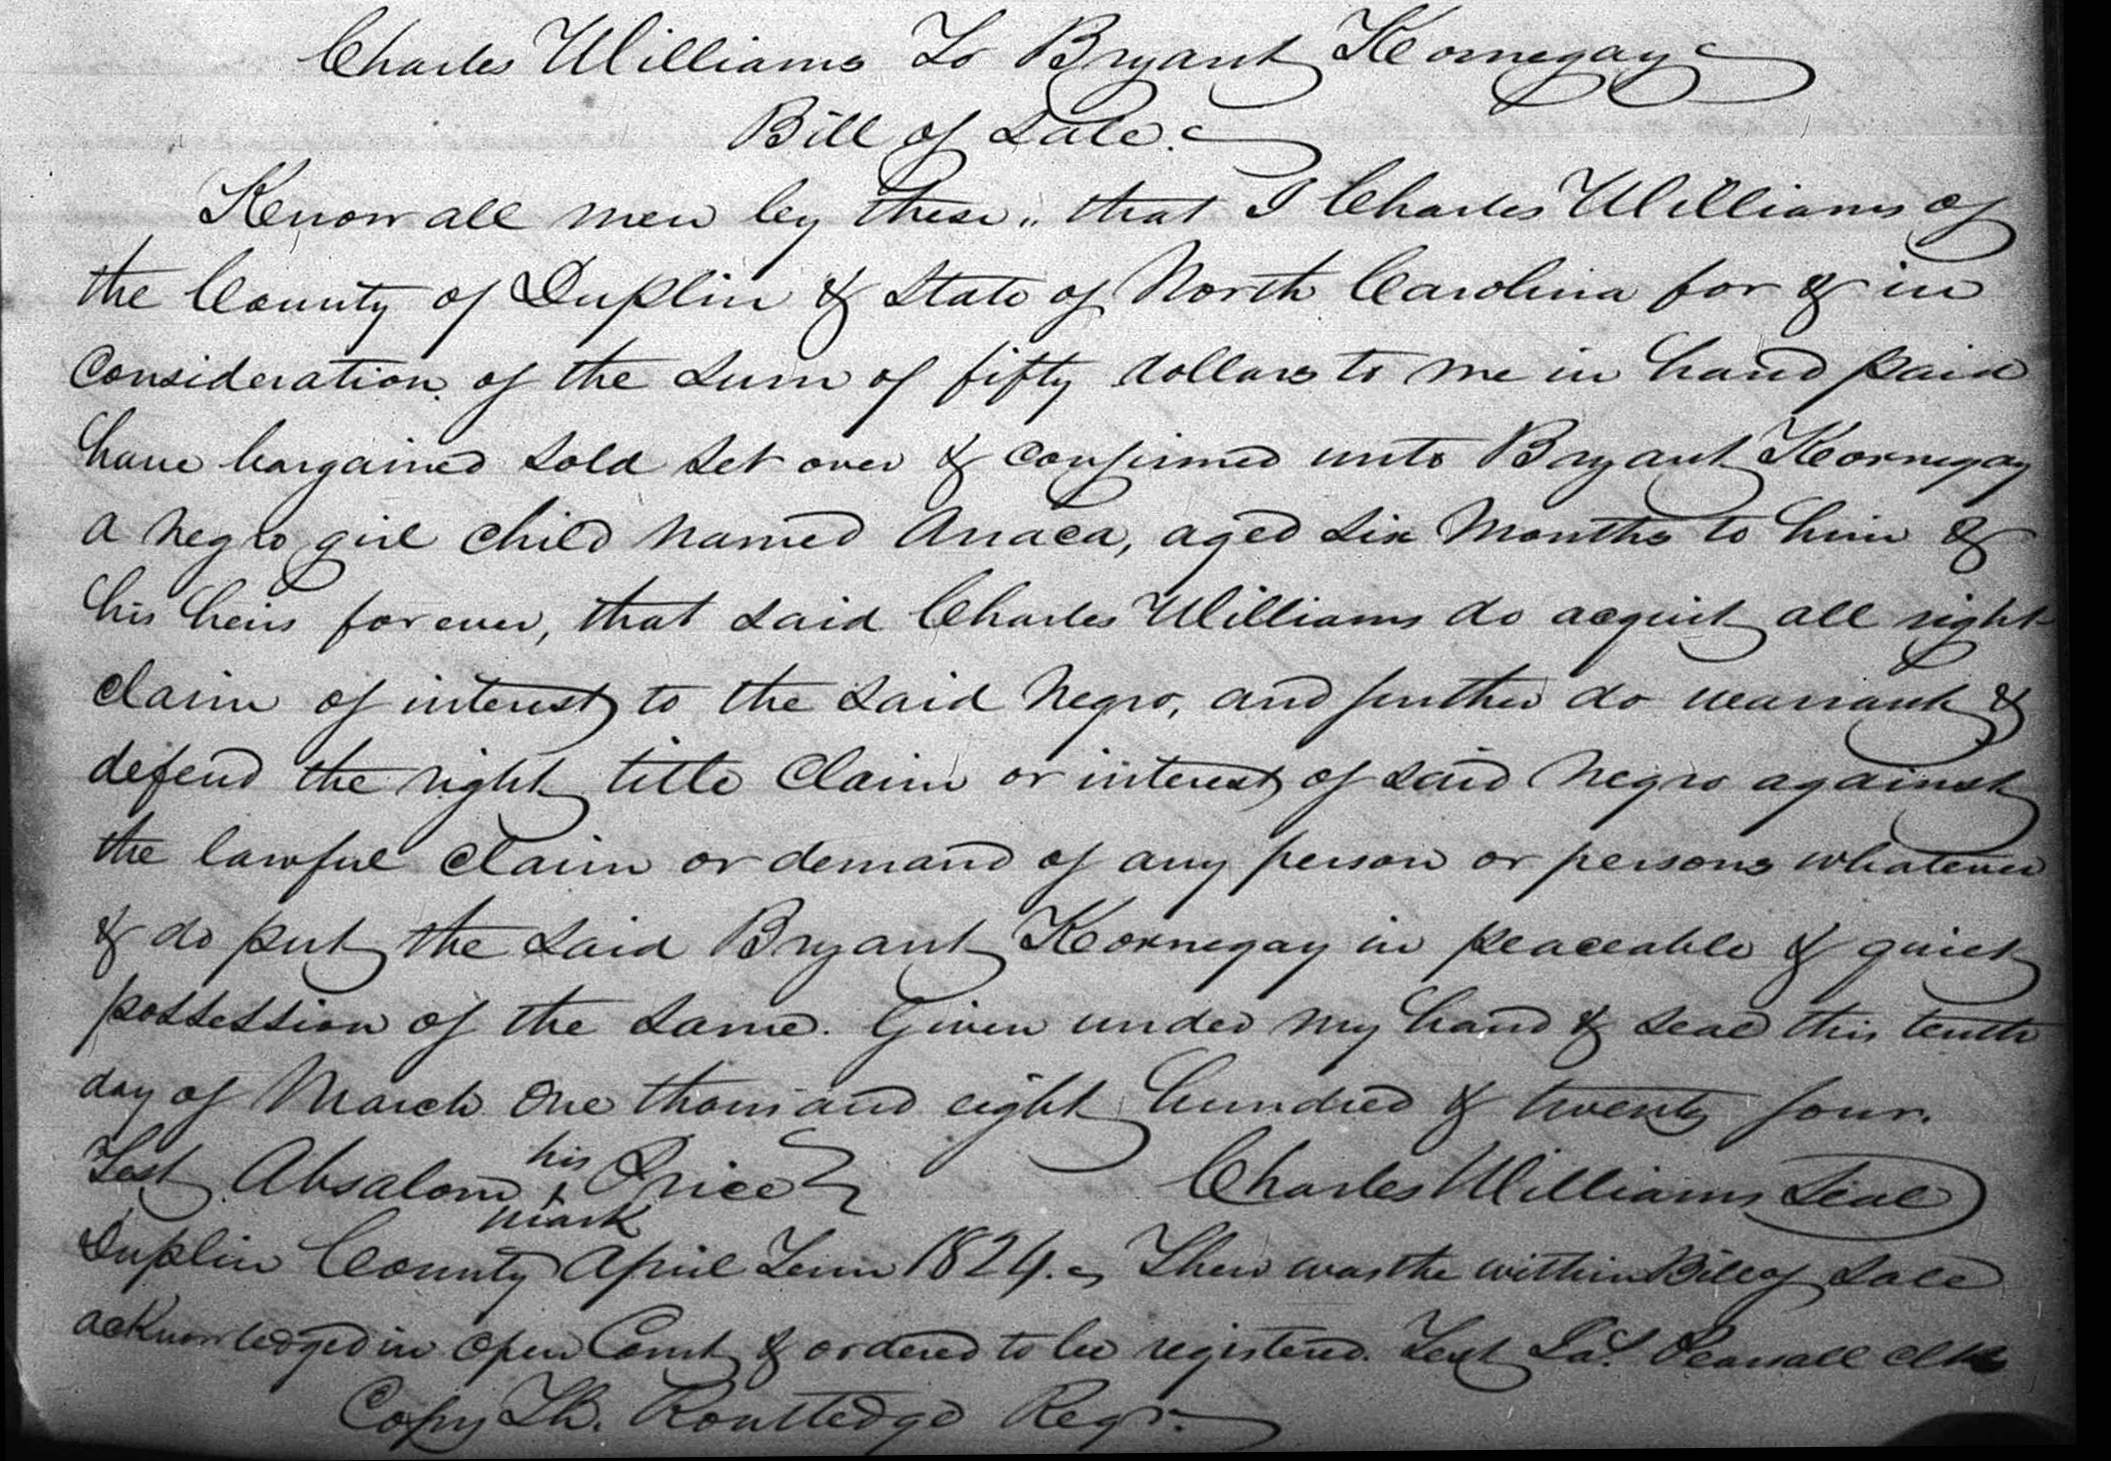 Charles Williams To Bryant Kornegay
Bill of Sale.
Know all men by these „ that I Charles Williams of
the County of Duplin & State of North Carolina for & in
Consideration of the Sum of fifty dollars to me in hand paid
have bargained Sold Set over & confirmed unto Bryant Kornegay
a negro girl child named Anaca, aged Six Months to him &
his heirs forever, that said Charles Williams do acquit all right
claim of interest to the said Negro, and further do warrant &
defend the right title Claim or interest of said Negro against
the lawful claim or demand of any person or persons whatever
& do put the said Bryant Kornegay in peaceable & quiet
possession of the same. Given under my hand & seal this tenth
day of March One thousand eight hundred & twenty four.
Test Absalom his + mark Price Charles Williams Seal
Duplin County April Term 1824. Then was the within Bill of Sale
acknowledged in Open Court & ordered to be registered. Test Jas. Pearsall Clk
Copy Th. Routledge Regr.